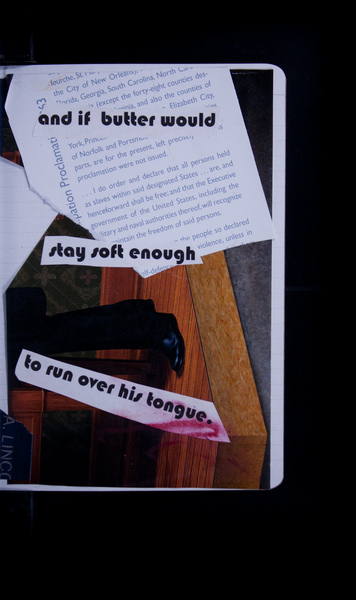 the City of New Orleans),
Florida, Georgia, South Carolina, North
(except the forty-eight counties des-
and also the counties of
Elizabeth City,
and if butter would
of Norfolk and
parts, are for the present, left
proclamation were not issued.
. . . I do order and declare that all persons held
as slaves within said designated States . . . are, and
henceforward shall be free; and that the Executive
government of the United States, including the
military and naval authorities thereof, will recognize
maintain the freedom of said persons.
the people so declared
violence, unless in
stay soft enough
to run over his tongue.
A. LINC